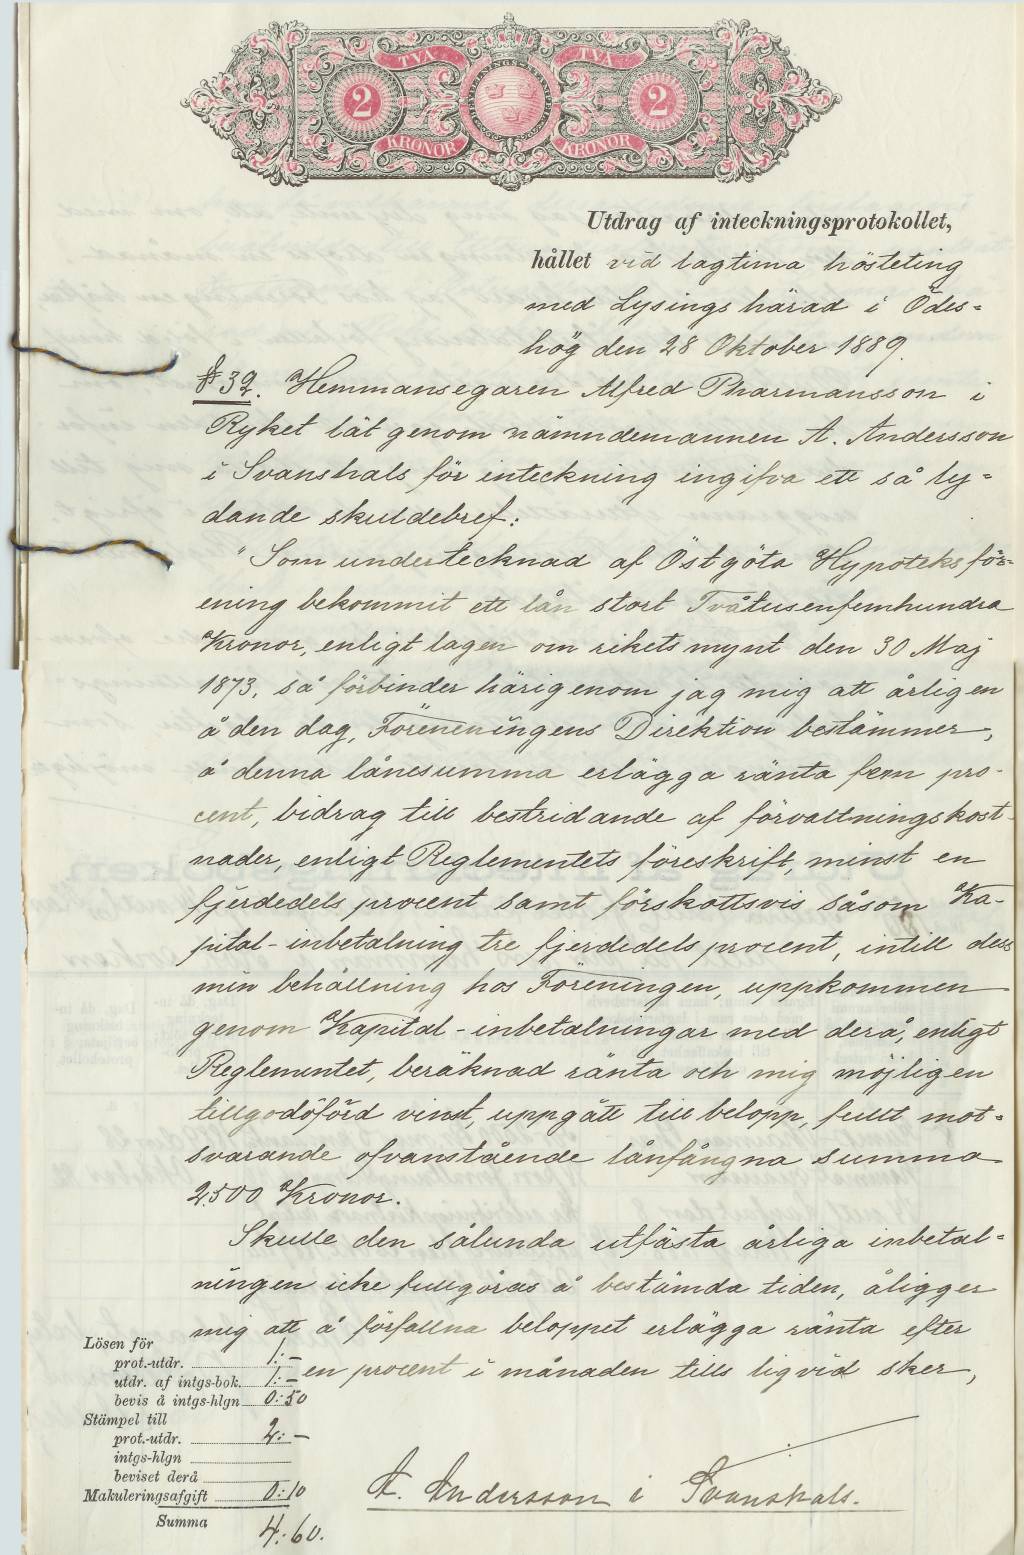 TVÅ TVÅ
2 2
KRONOR KRONOR
Utdrag af inteckningsprotokollet,
hållet vid lagtima hösteting
med Lysings härad i Ödes=
hög den 28 Oktober 1889.
§ 32. Hemmansegaren Alfred Pharmansson i
Ryket lät genom nämndemannen A. Andersson
i Svanshals för inteckning ingifva ett så ly=
dande skuldebref:
"Som undertecknad af Östgöta Hypoteksför=
ening bekommit ett lån stort Tvåtusenfemhundra
Kronor, enligt lagen om rikets mynt den 30 Maj
1873, så förbinder härigenom jag mig att årligen
å den dag, Föreneningens Direktion bestämmer,
å denna lånesumma erlägga ränta fem pro-
cent, bidrag till bestridande af förvaltningskost-
nader, enligt Reglementets föreskrift, minst en
fjerdedels procent samt förskottsvis såsom Ka-
pital-inbetalning tre fjerdedels procent, intill dess
min behållning hos Föreningen, uppkommen
genom Kapital-inbetalningar med derå, enligt
Reglementet, beräknad ränta och mig möjligen
tillgodoförd vinst, uppgått till belopp, fullt mot=
svarande ofvanstående lånfångna summa
2500 Kronor.
Skulle den sålunda utfästa årliga inbetal=
ningen icke fullgöras å bestämda tiden, åligger
mig att å förfallna beloppet erlägga ränta efter
en procent i månaden tills liqvid sker,
Lösen för
prot.-utdr. 1:-
utdr. af intgs-bok. 1:-
bevis å intgs-hlgn 0:50
Stämpel till
prot.-utdr. 2:-
intgs-hlgn
beviset derå
Makuleringsafgift 0:10
Summa 4:60.
A. Andersson i Svanshals.